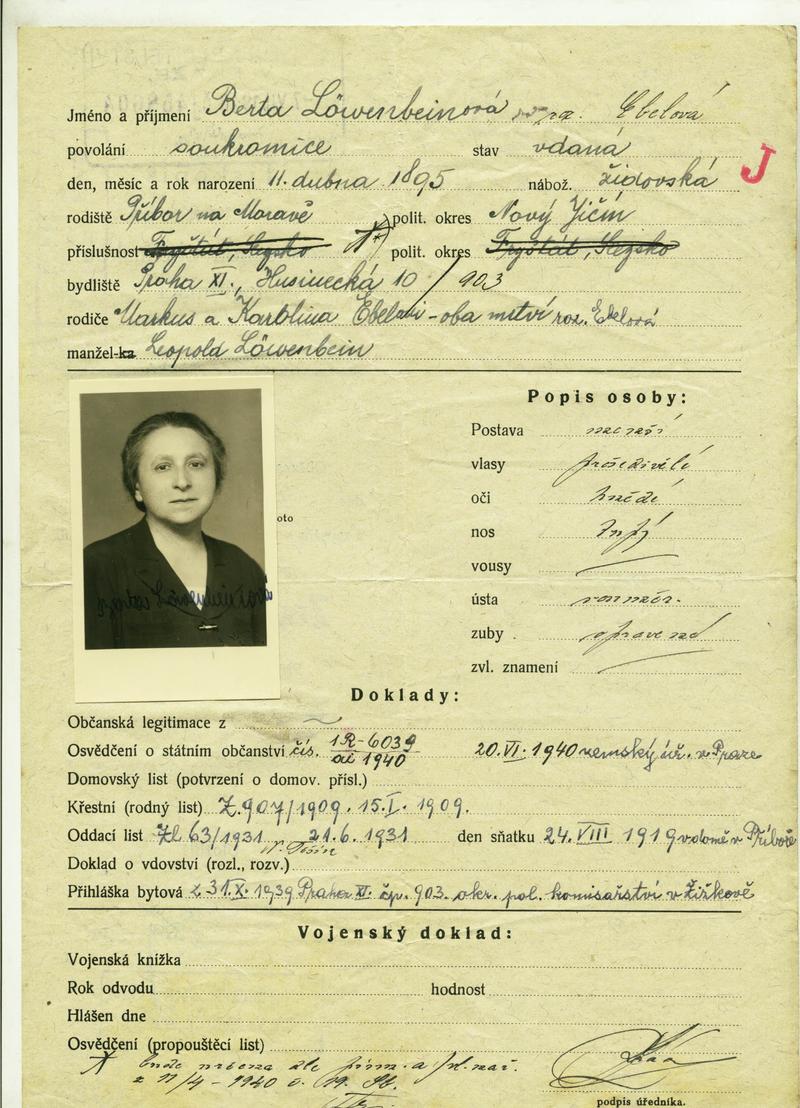 Jméno a příjmení Berta Löwenbeinová roz. Ebelová
povolání soukromice stav vdaná
J
den, měsíc a rok narození 11. dubna 1895 nábož. židovská
rodiště Příbor na Moravě polit. okres Nový Jičín
příslušnost Fryštát, Slezsko polit. okres Fryštát, Slezsko
bydliště Praha XI., Husinecká 10 / 903
rodiče Markus a Karolina Ebel - oba mrtví roz. Ebelová
manžel-ka Leopold Löwenbein
Popis osoby:
Postava menší
vlasy prošedivělé
oči hnědé
oto
nos
vousy
ústa rozměr.
zuby opravené
zvl. znamení
Berta Löwenbeinová
Doklady:
Občanská legitimace z
Osvědčení o státním občanství čís. 1R-6039 ai 1940 20.VI.1940 zemský úř. v Praze
Domovský list (potvrzení o domov. přísl.)
Křestní (rodný list) Z. 907/1909. 15.I. 1909.
Oddací list Zl 63/1931 21.6.1931 den sňatku 24.VIII 1919 v domě v Příboře
Doklad o vdovství (rozl., rozv.)
Přihláška bytová z 31.X.1939 Praha XI. čp. 903. okr. pol. komisařství v Žižkově
Vojenský doklad:
Vojenská knížka
Rok odvodu hodnost
Hlášen dne
Osvědčení (propouštěcí list)
z 11/4 - 1940
podpis úředníka.